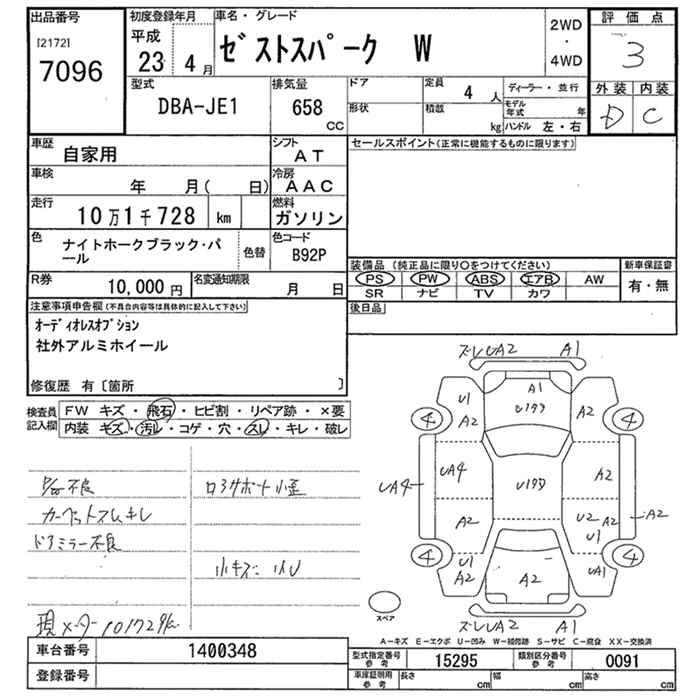 出品番号
[2172]
7096
初度登録年月
平成
23 4月
車名・グレード
ゼストスパーク W
2WD
・
4WD
評価点
3
外装 内装
D C
型式
DBA-JE1
排気量
658
CC
ドア
定員
4 人
形状
積載
kg
ディーラー・並行
モデル年式 年
ハンドル 左・右
車歴
自家用
シフト
AT
セールスポイント(正常に機能するものに限ります)
車検
年 月( 日)
冷房
AAC
走行
10万1千728 km
燃料
ガソリン
色
ナイトホークブラック・パール
色替
色コード
B92P
装備品 (純正品に限り○をつけてください)
新車保証書
PS PW ABS エアB AW
有・無
SR ナビ TV カワ
R券
10,000円
名変通知期限
月 日
後日品
注意事項申告欄(不具合内容等は具体的に記入して下さい)
オーディオレスオプション
社外アルミホイール
修復歴 有〔箇所 〕
検査員記入欄
FW キズ・飛石・ヒビ割・リペア跡・×要
内装 キズ・汚レ・コゲ・穴・スレ・キレ・破レ
P/G不良
カーペットスレ キレ
ドアミラー不良
現メーター 101729km
ロアサポート小歪
小キズ 凹U
ズレUA2 A1
A1
U1タタ
U1
A2
A2
4
4
UA4
UA4
U1タタ
A2
A2
U2
A2
U1
A2
4
4
U1
A2
A2
UA1
ズレUA2 A1
スペア
A-キズ E-エクボ U-凹み W-補修跡 S-サビ C-腐食 XX-交換済
車台番号
1400348
登録番号
型式指定番号 参考
15295
類別区分番号 参考
0091
車庫証明用 参考
長さ cm 幅 cm 高さ cm